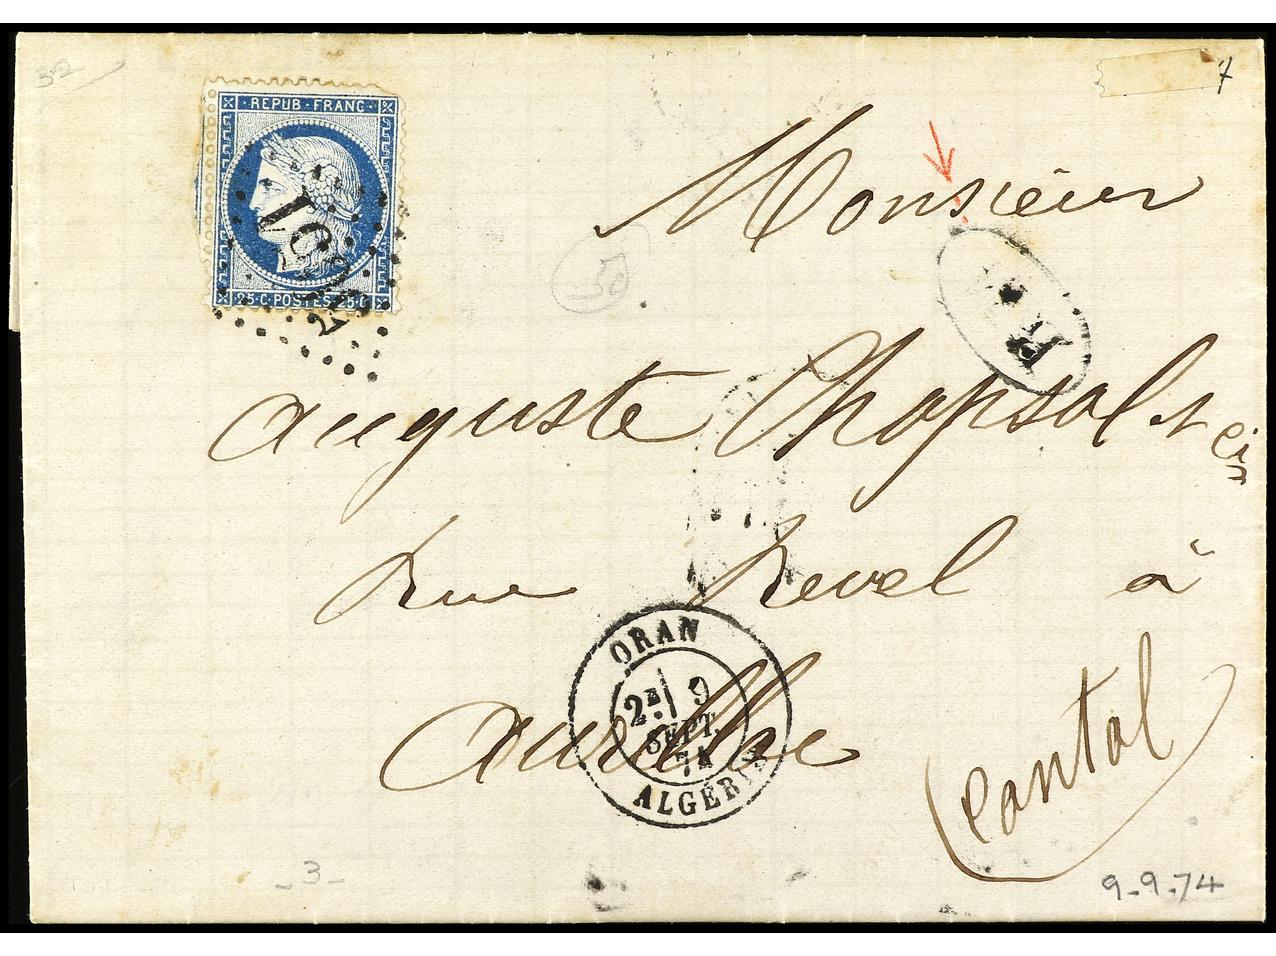 3-2
7
REPUB · FRANC
25 · C · POSTES · 25 · C
Monsieur
50
Auguste Chapsal
Rue Revel à
ORAN
9
SEPT.
74
ALGÉRIE
Aurillac
Cantal
- 3 -
9-9-74